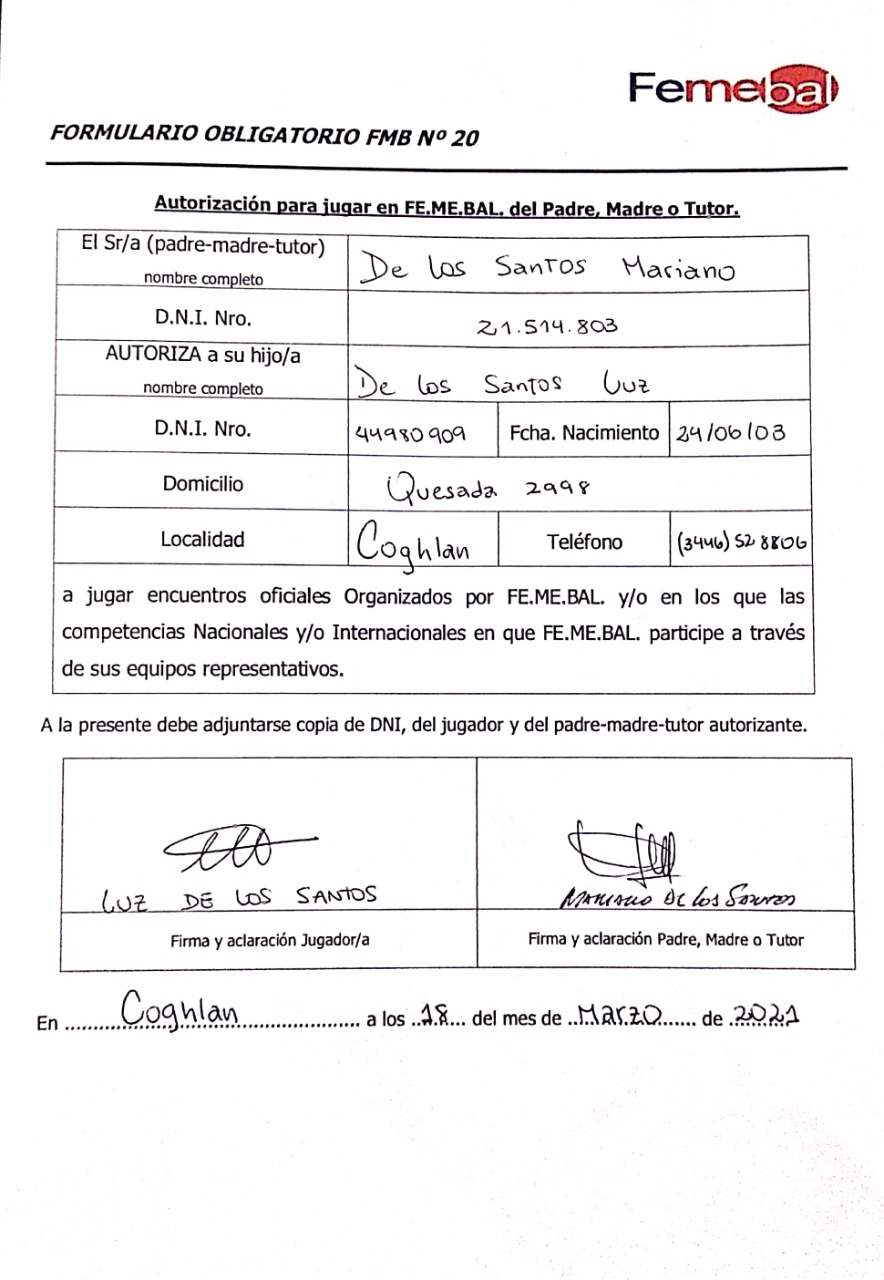 Femebal
FORMULARIO OBLIGATORIO FMB Nº 20
Autorización para jugar en FE.ME.BAL. del Padre, Madre o Tutor.
El Sr/a (padre-madre-tutor)
nombre completo
De los Santos Mariano
D.N.I. Nro.
21.514.803
AUTORIZA a su hijo/a
nombre completo
De los Santos Luz
D.N.I. Nro.
44980909
Fcha. Nacimiento
24/06/03
Domicilio
Quesada 2998
Localidad
Coghlan
Teléfono
(3446) 528806
a jugar encuentros oficiales Organizados por FE.ME.BAL. y/o en los que las
competencias Nacionales y/o Internacionales en que FE.ME.BAL. participe a través
de sus equipos representativos.
A la presente debe adjuntarse copia de DNI, del jugador y del padre-madre-tutor autorizante.
LUZ DE LOS SANTOS
MARIANO DE LOS SANTOS
Firma y aclaración Jugador/a
Firma y aclaración Padre, Madre o Tutor
En Coghlan a los 18 del mes de Marzo de 2021